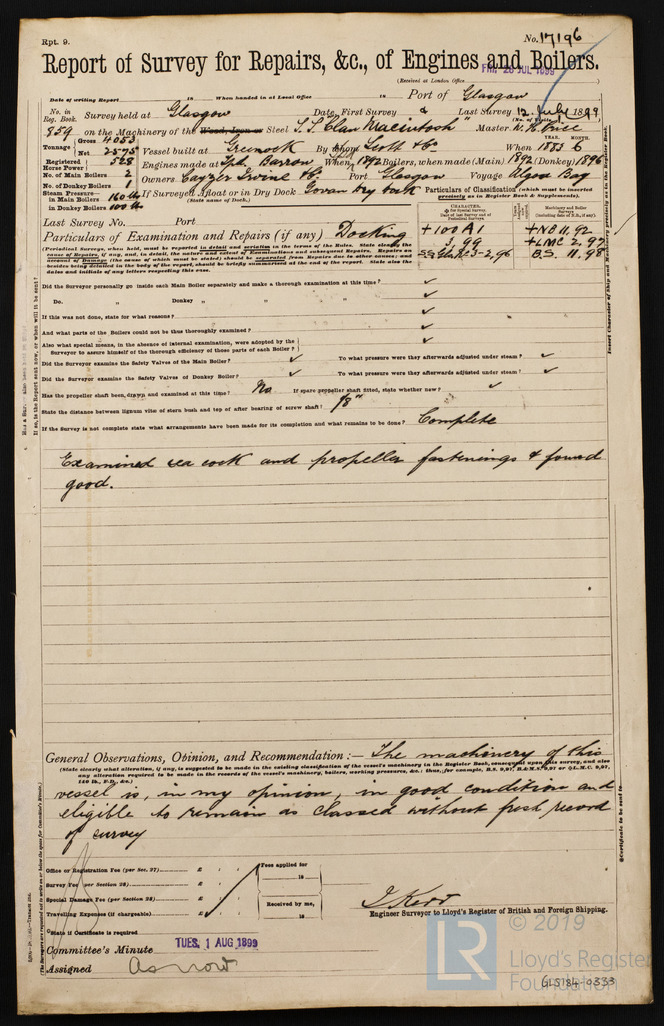 Rpt. 9.
No. 17196
Report of Survey for Repairs, &c., of Engines and Boilers.
FRI. 28 JUL 1899
(Received at London Office
Date of writing Report 18 When handed in at Local Office 18 Port of Glasgow
No. in Reg. Book. Survey held at Glasgow Date, First Survey Last Survey 12 July 1899
(No. of Visits
859 on the Machinery of the Wood, Iron or Steel S.S. "Clan Macintosh" Master
Tonnage Gross 4053 Net 2575
YEAR. MONTH.
Vessel built at Greenock By whom Scott & Co When 1883 6
Registered Horse Power 528 Engines made at Barrow When 1892 Boilers, when made (Main) 1892 (Donkey) 1896
No. of Main Boilers 2
No. of Donkey Boilers 1 Owners Cayzer Irvine & Co. Port Glasgow Voyage Algoa Bay
Steam Pressure in Main Boilers 160 lbs
in Donkey Boilers 100 lbs
If Surveyed Afloat or in Dry Dock Govan Dry Dock
(State name of Dock.)
Particulars of Classification (which must be inserted precisely as in Register Book & Supplements).
Last Survey No. Port
CHARACTER.
Machinery and Boiler Surveys (including date of N.B., if any).
Particulars of Examination and Repairs (if any) Docking
+100A1 +NB 11.92
3,99 +LMC 2.97
2,96 B.S. 11.98
(Periodical Surveys, when held, must be reported in detail and seriatim in the terms of the Rules. State clearly the
cause of Repairs, if any, and, in detail, the nature and extent of Examinations and subsequent Repairs. Repairs on
account of Damage (the cause of which must be stated) should be separated from Repairs due to other causes; and
besides being detailed in the body of the report, should be briefly summarised at the end of the report. State also the
dates and initials of any letters respecting this case.
Did the Surveyor personally go inside each Main Boiler separately and make a thorough examination at this time? ✓
Do. „ Donkey „ „ „ ✓
If this was not done, state for what reasons? ✓
And what parts of the Boilers could not be thus thoroughly examined? ✓
Also what special means, in the absence of internal examination, were adopted by the
Surveyor to assure himself of the thorough efficiency of those parts of each Boiler? ✓
Did the Surveyor examine the Safety Valves of the Main Boiler? ✓ To what pressure were they afterwards adjusted under steam? ✓
Did the Surveyor examine the Safety Valves of Donkey Boiler? ✓ To what pressure were they afterwards adjusted under steam? ✓
Has the propeller shaft been drawn and examined at this time? No If spare propeller shaft fitted, state whether new? ✓
State the distance between lignum vitæ of stern bush and top of after bearing of screw shaft?
If the Survey is not complete state what arrangements have been made for its completion and what remains to be done? Complete
Examined sea cock and propeller fastenings & found
good.
General Observations, Opinion, and Recommendation :— The machinery of this
(State clearly what alteration, if any, is suggested to be made in the existing classification of the vessel's machinery in the Register Book, consequent upon this survey, and also
any alteration required to be made in the records of the vessel's machinery, boilers, working pressures, &c.: thus, for example, B.S. 9,97, B.&M.S. 9,97 or L.M.C. 9,97,
140 lb., F.D., &c.)
vessel is, in my opinion, in good condition and
eligible to remain as classed without fresh record
of survey
Office or Registration Fee (per Sec. 27) £ : :
Survey Fee (per Section 28) £ : :
Special Damage Fee (per Section 28) £ : :
Travelling Expenses (if chargeable) £ : :
Fees applied for
18
Received by me,
18
Engineer Surveyor to Lloyd's Register of British and Foreign Shipping.
State if Certificate is required
Committee's Minute TUES. 1 AUG 1899
Assigned As now
© 2019
LR
Lloyd's Register
Foundation
GLS184-0333